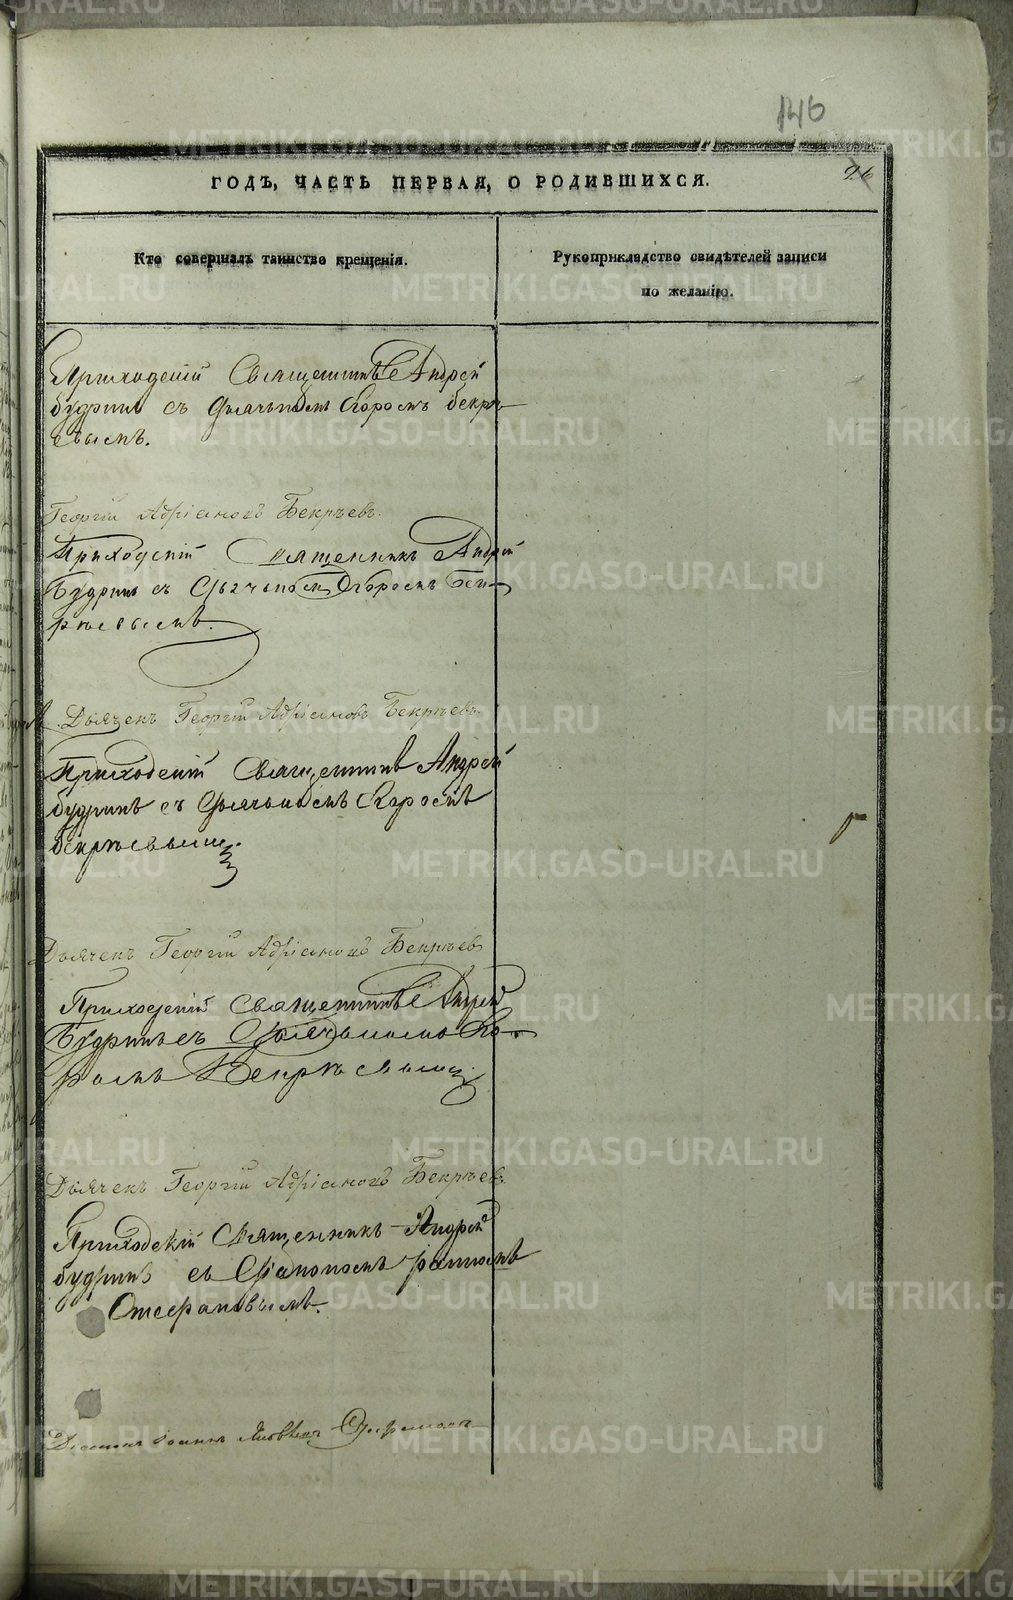 146
26
ГОДЪ, ЧАСТЬ ПЕРВАЯ, О РОДИВШИХСЯ.
Кто совершалъ таинство крещенія.
Рукоприкладство свидѣтелей записи
по желанію.
Приходскій Священникъ Андрей
Будринъ съ дьячькомъ Егоромъ Бекрѣ-
евымъ.
Георгій Адріановъ Бекрѣевъ.
Приходскій Священникъ Андрей
Будринъ съ Дьячькомъ Егоромъ Бек-
рѣевымъ.
Дьячекъ Георгій Адріановъ Бекрѣевъ.
Приходскій Священникъ Андрей
Будринъ съ Дьячькомъ Егоромъ
Бекрѣевымъ.
Дьячекъ Георгій Адріановъ Бекрѣевъ
Приходскій Священникъ Андрей
Будринъ съ Дьячькомъ Его-
ромъ Бекрѣевымъ.
Дьячекъ Георгій Адріановъ Бекрѣевъ.
Приходскій Священникъ Андрей
Будринъ съ Діакономъ Іоанномъ
Стефановымъ.
METRIKI.GASO-URAL.RU